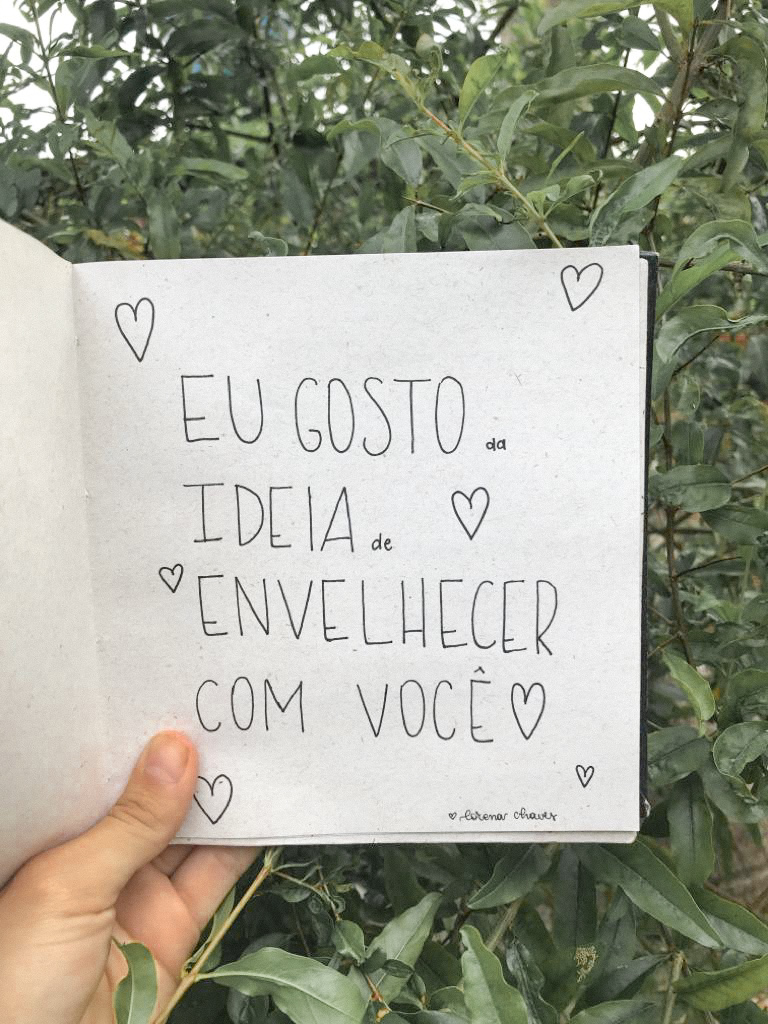 EU GOSTO da
IDEIA de
ENVELHECER
COM VOCÊ
lorena chaves